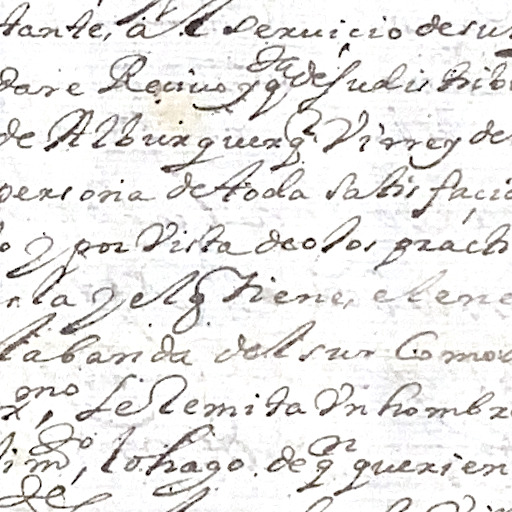 tante, a el seruicio de su
dare Reciuo y q̃ da de su distribu
de Alburquerq̃ Virrey de
persona de toda satisfacio
o y por Vista de olos prach
rla y el q̃ tiene, el ene
la banda del sur Como
x.mo, se Remita Vn hombre
lim.do, lo hago. de q.n querien